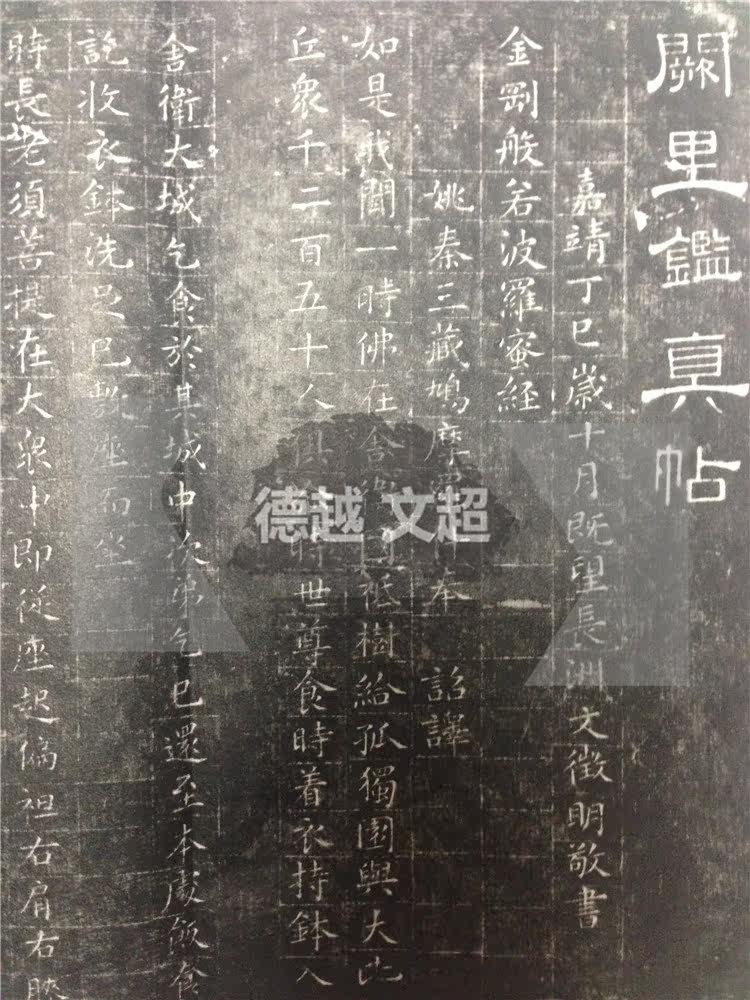 闕里鑑真帖
嘉靖丁巳歲十月既望長洲文徵明敬書
金剛般若波羅蜜経
姚秦三藏鳩摩羅什奉 詔譯
如是我聞一時佛在舍衛國祇樹給孤獨園與大比
丘衆千二百五十人俱時世尊食時着衣持鉢入
舍衛大城乞食於其城中次弟乞已還至本處飯食
訖收衣鉢洗足已敷座而坐
時長老須菩提在大衆中即從座起偏袒右肩右膝
德越 文超